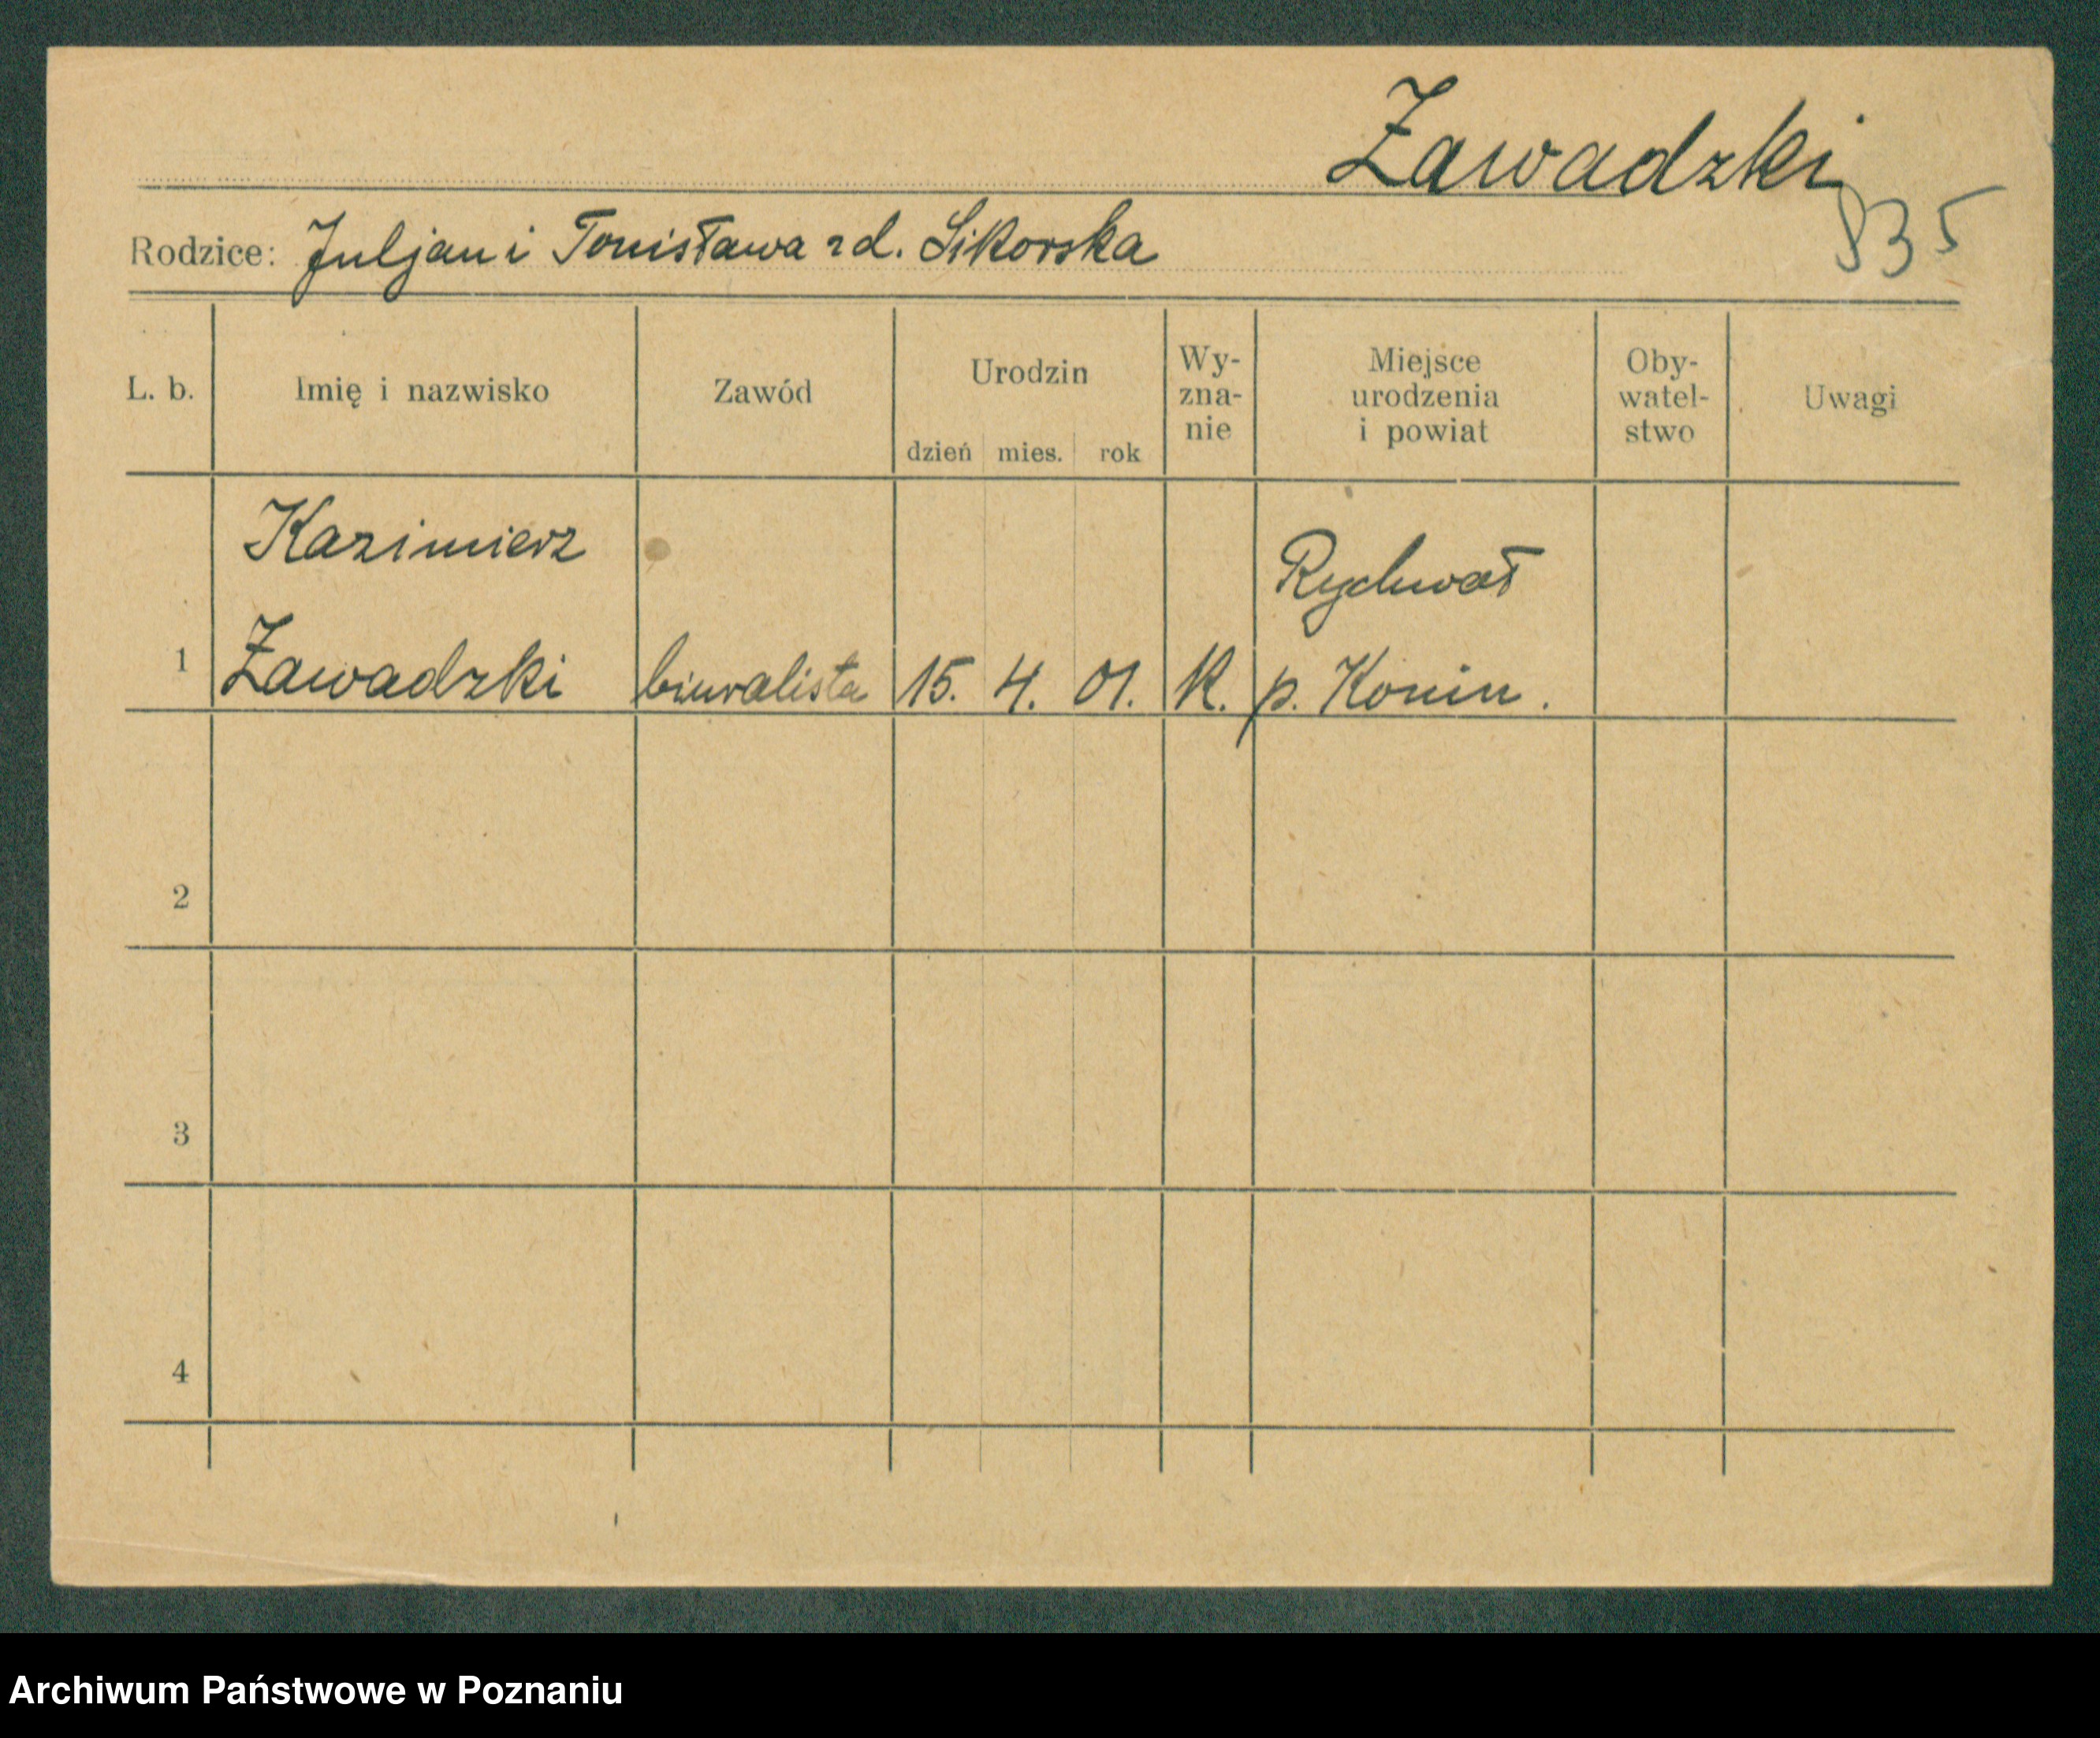 Zawadzki
835
Rodzice: Juljan i Tonisława rd. Sikorska
L. b. Imię i nazwisko Zawód Urodzin dzień mies. rok Wy-zna-nie Miejsce urodzenia i powiat Oby-watel-stwo Uwagi
Kazimierz Rychwał
1 Zawadzki biuralista 15. 4. 01. K. p. Konin.
2
3
4
Archiwum Państwowe w Poznaniu